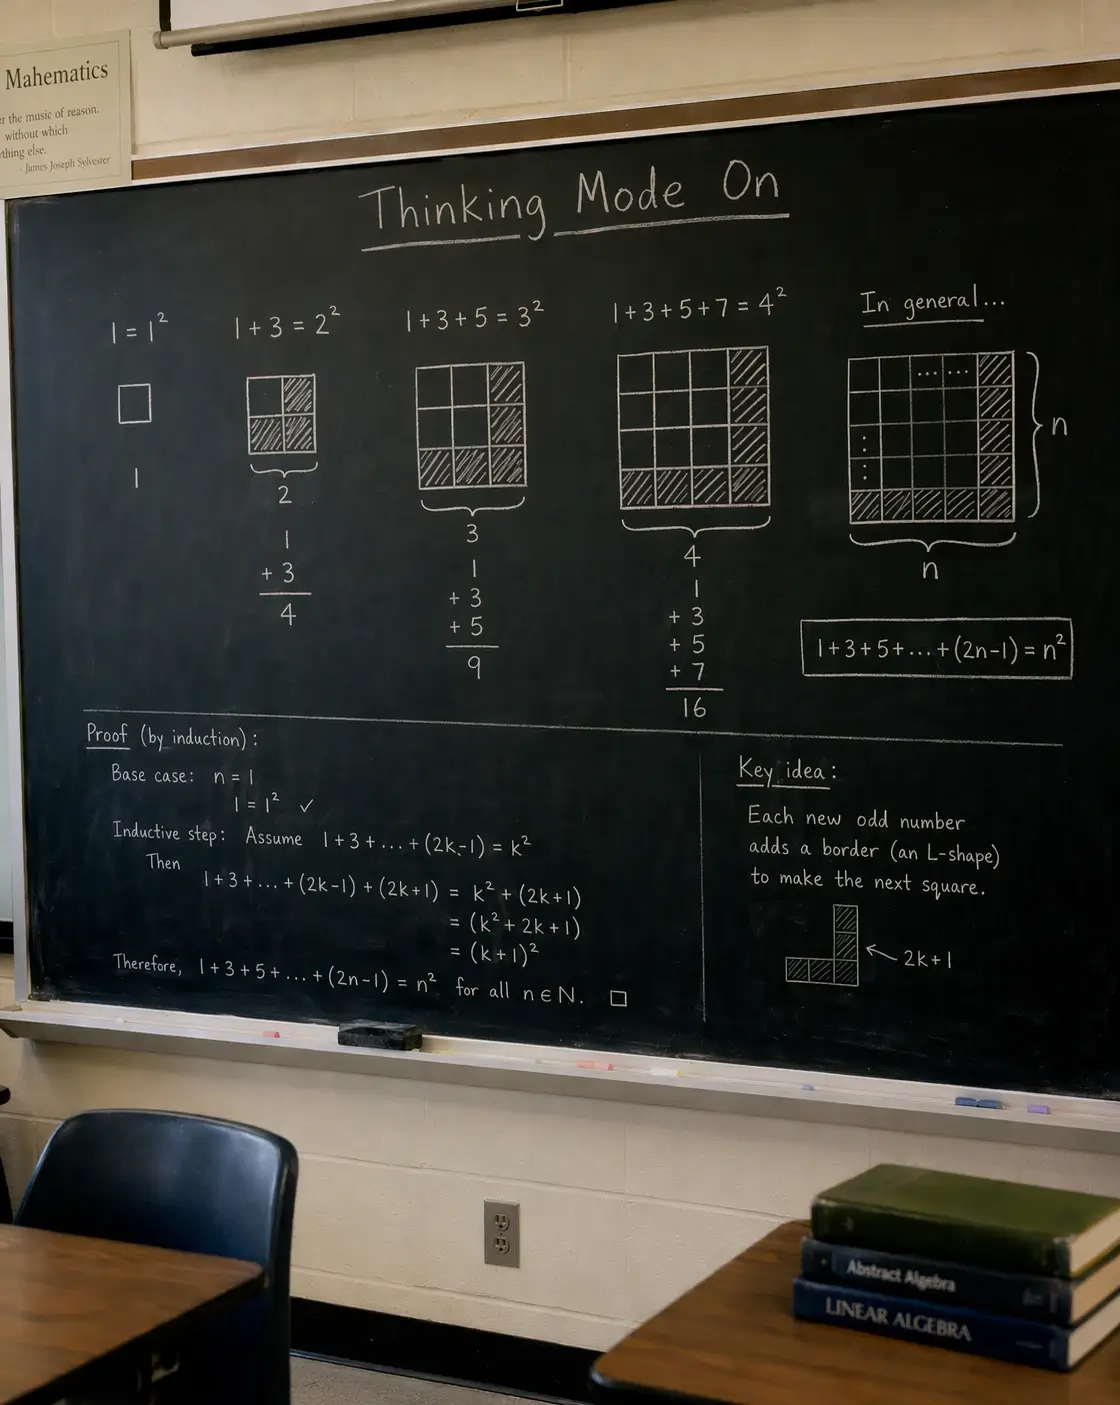 Mahematics
the music of reason.
without which
else.
- James Joseph Sylvester
Thinking Mode On
1 = 1²
1
1 + 3 = 2²
2
1
+ 3
4
1 + 3 + 5 = 3²
3
1
+ 3
+ 5
9
1 + 3 + 5 + 7 = 4²
4
1
+ 3
+ 5
+ 7
16
In general...
... ...
n
n
1 + 3 + 5 + ... + (2n-1) = n²
Proof (by induction):
Base case: n = 1
1 = 1² ✓
Inductive step: Assume 1 + 3 + ... + (2k-1) = k²
Then
1 + 3 + ... + (2k-1) + (2k+1) = k² + (2k+1)
= (k² + 2k + 1)
= (k+1)²
Therefore, 1 + 3 + 5 + ... + (2n-1) = n² for all n ∈ N. □
Key idea:
Each new odd number
adds a border (an L-shape)
to make the next square.
2k+1
Abstract Algebra
LINEAR ALGEBRA